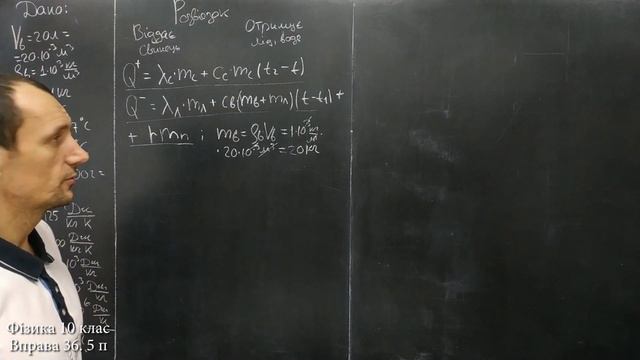 Дано:
Vв = 20л =
= 20·10⁻³ м³
ρв = 1·10³ кг/м³
кг
7°C
00г =
125 Дж/кг К
00 Дж/кг К
10³ Дж/кг
10³ Дж/кг
6 Дж/к
Розв'язок
Віддає Отримує
Свинець лід, вода
Q⁺ = λc·mc + Cc·mc (t₂ - t)
Q⁻ = λл·mл + Cв(mв + mл)(t - t₁) +
+ rmп ; mв = ρвVв = 1·10³ кг/м³ ·
· 20·10⁻³ м³ = 20кг
Фізика 10 клас
Вправа 36. 5 п